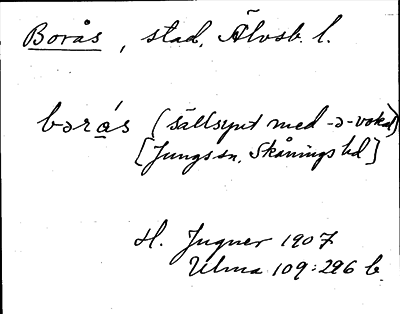 Borås, stad, Älvsb. l.
bərås (sällsynt med -ə- vokal)
[Jungs sn, Skånings hd]
H. Jugner 1907
Ulma 109:296 b.